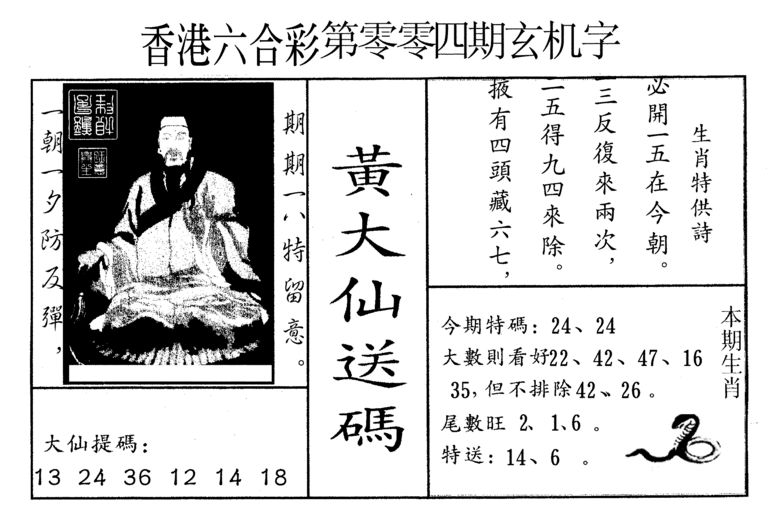 香港六合彩第零零四期玄机字
一朝一夕防反彈，
期期一八特留意。
大仙提碼：
13 24 36 12 14 18
黃大仙送碼
生肖特供詩
必開一五在今朝。
二三反復來兩次，
二五得九四來除。
掖有四頭藏六七，
本期生肖
今期特碼：24、24
大數則看好22、42、47、16
35，但不排除42、26。
尾數旺 2、1、6 。
特送：14、6 。